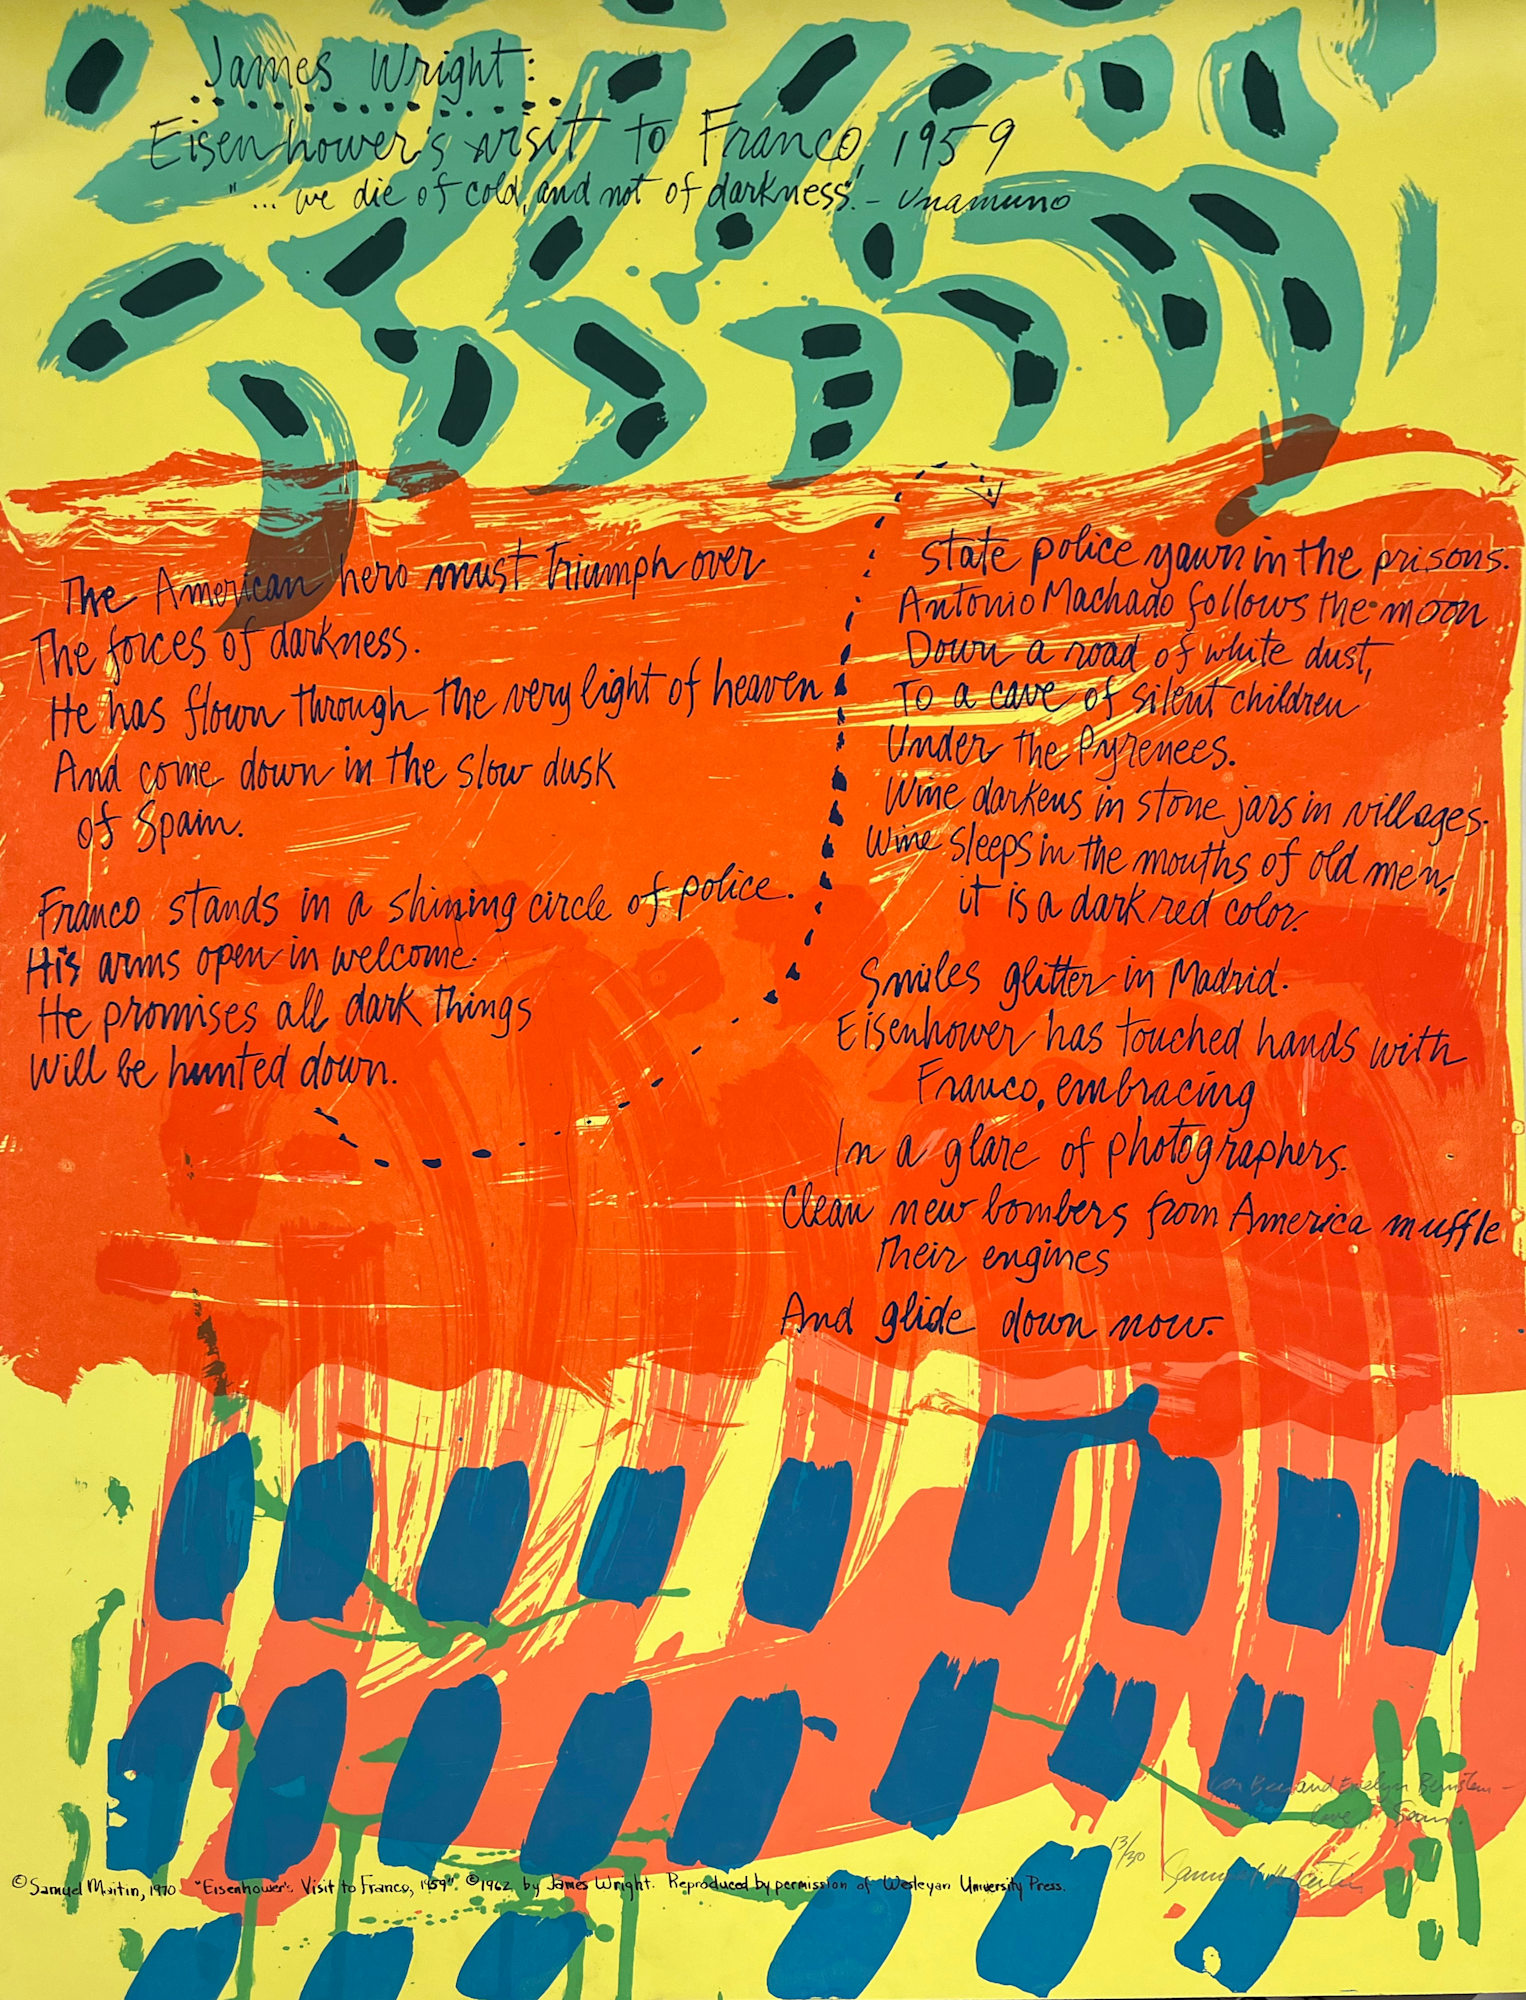 James Wright:
Eisenhower's visit to Franco, 1959
"... we die of cold, and not of darkness." - Unamuno
The American hero must triumph over
The forces of darkness.
He has flown through the very light of heaven
And come down in the slow dusk
of Spain.
Franco stands in a shining circle of police.
His arms open in welcome.
He promises all dark things
Will be hunted down.
State police yawn in the prisons.
Antonio Machado follows the moon
Down a road of white dust,
To a cave of silent children
Under the Pyrenees.
Wine darkens in stone jars in villages.
Wine sleeps in the mouths of old men,
it is a dark red color.
Smiles glitter in Madrid.
Eisenhower has touched hands with
Franco, embracing
In a glare of photographers.
Clean new bombers from America muffle
Their engines
And glide down now.
for Ben and Evelyn Bernstein -
Love, Sam.
13/30
Samuel Maitin
© Samuel Maitin, 1970 "Eisenhower's Visit to Franco, 1959". © 1962 by James Wright. Reproduced by permission of Wesleyan University Press.